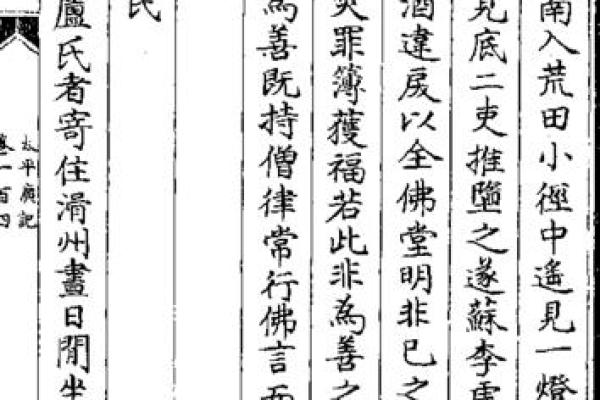 南入荒田小徑中遙見一燈
見底二吏推墮之遂蘇李虛
酒違戾以全佛堂明非已之
災罪簿獲福若此非為善之
為善既持僧律常行佛言而
氏
盧氏者寄住滑州晝日閒坐
太平廣記
卷一百四